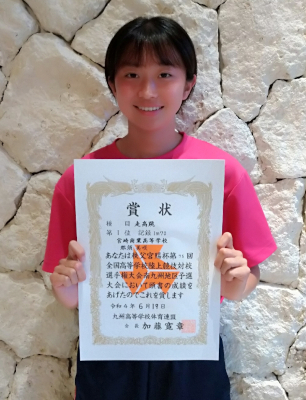 賞状
種目 走高跳
第1位 記録 1m73
宮崎商業高等学校
あなたは秩父宮賜杯第75回
全国高等学校陸上競技対校
選手権大会南九州地区予選
大会において頭書の成績を
あげたのでこれを賞します
令和4年6月19日
九州高等学校体育連盟
会長 加藤寛章